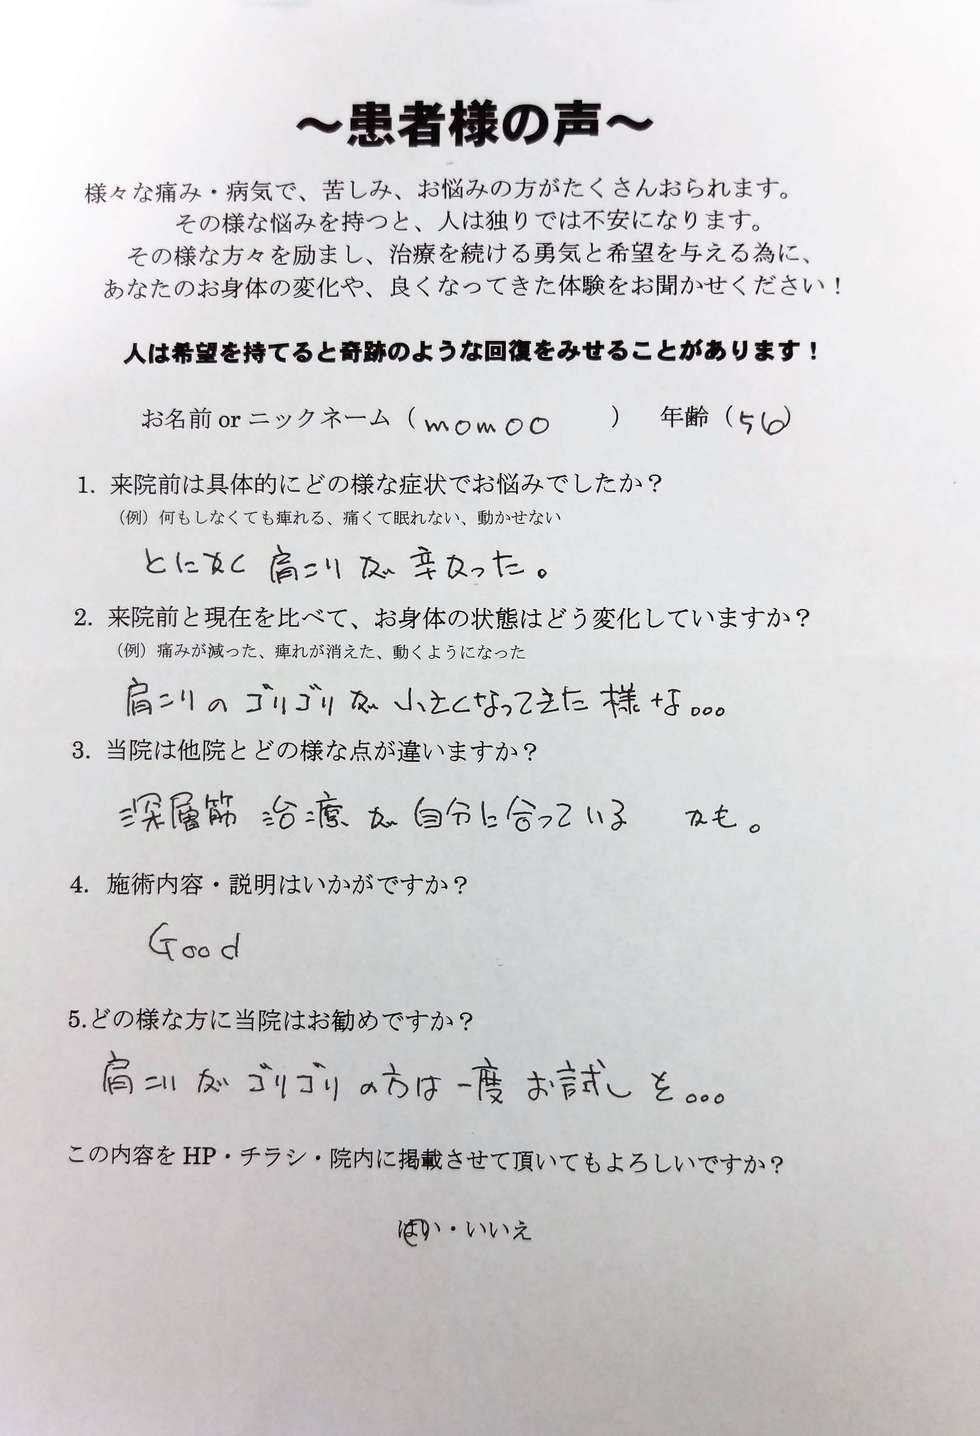 ～患者様の声～
様々な痛み・病気で、苦しみ、お悩みの方がたくさんおられます。
その様な悩みを持つと、人は独りでは不安になります。
その様な方々を励まし、治療を続ける勇気と希望を与える為に、
あなたのお身体の変化や、良くなってきた体験をお聞かせください！
人は希望を持てると奇跡のような回復をみせることがあります！
お名前 or ニックネーム（momoo）　年齢（56）
1. 来院前は具体的にどの様な症状でお悩みでしたか？
（例）何もしなくても痺れる、痛くて眠れない、動かせない
とにかく肩こりが辛かった。
2. 来院前と現在を比べて、お身体の状態はどう変化していますか？
（例）痛みが減った、痺れが消えた、動くようになった
肩こりのゴリゴリが小さくなってきた様な...
3. 当院は他院とどの様な点が違いますか？
深層筋治療が自分に合っている かも。
4. 施術内容・説明はいかがですか？
Good
5.どの様な方に当院はお勧めですか？
肩こりがゴリゴリの方は一度お試しを...
この内容を HP・チラシ・院内に掲載させて頂いてもよろしいですか？
はい・いいえ